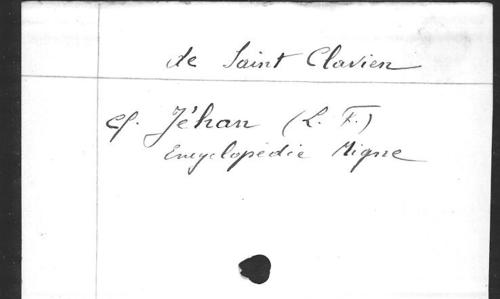 de Saint Clavien
cf. Jéhan (L. F.)
Encyclopédie Migne